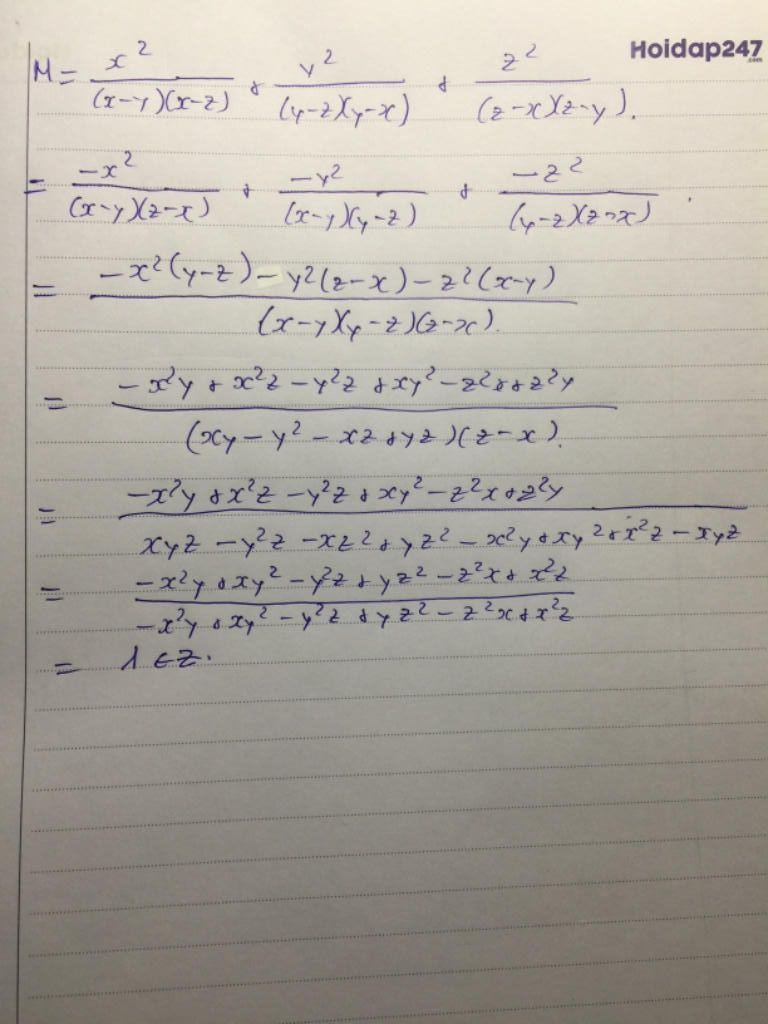 Hoidap247
.com
M = x²/((x-y)(x-z)) + y²/((y-z)(y-x)) + z²/((z-x)(z-y)).
= -x²/((x-y)(z-x)) + -y²/((x-y)(y-z)) + -z²/((y-z)(z-x)).
= (-x²(y-z) - y²(z-x) - z²(x-y))/((x-y)(y-z)(z-x)).
= (-x²y + x²z - y²z + xy² - z²x + z²y)/((xy - y² - xz + yz)(z-x)).
= (-x²y + x²z - y²z + xy² - z²x + z²y)/(xyz - y²z - xz² + yz² - x²y + xy² + x²z - xyz)
= (-x²y + xy² - y²z + yz² - z²x + x²z)/(-x²y + xy² - y²z + yz² - z²x + x²z)
= 1 ∈ Z.